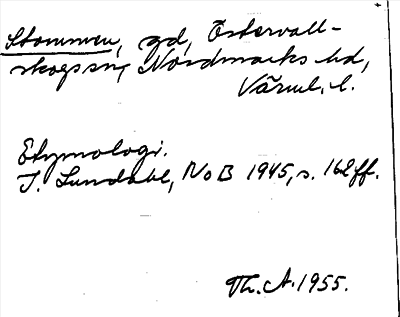 Stommen, gd, Östervall-
skogs sn, Nordmarks hd,
Värml. l.
Etymologi.
I. Lundahl, NoB 1945, s. 162 ff.
Th. A. 1955.